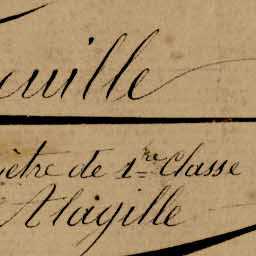 euille
ètre de 1re Classe
Alayille